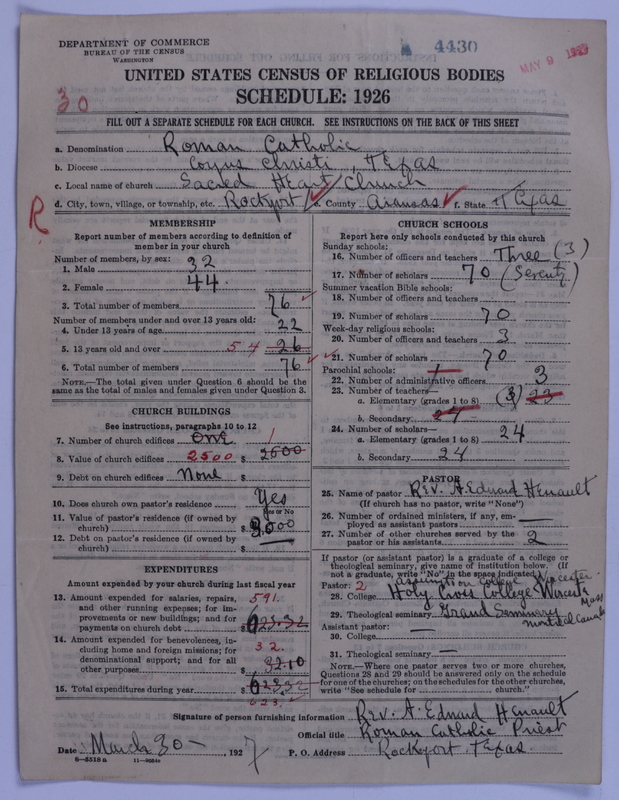 DEPARTMENT OF COMMERCE
BUREAU OF THE CENSUS
WASHINGTON
4430
MAY 9
UNITED STATES CENSUS OF RELIGIOUS BODIES
30
SCHEDULE: 1926
FILL OUT A SEPARATE SCHEDULE FOR EACH CHURCH. SEE INSTRUCTIONS ON THE BACK OF THIS SHEET
a. Denomination Roman Catholic
b. Diocese Corpus Christi, Texas
c. Local name of church Sacred Heart Church
R
d. City, town, village, or township, etc. Rockport e. County Aransas f. State Texas
MEMBERSHIP
Report number of members according to definition of member in your church
Number of members, by sex:
1. Male 32
2. Female 44
3. Total number of members 76
Number of members under and over 13 years old:
4. Under 13 years of age 22
5. 13 years old and over 54 26
6. Total number of members 76
NOTE.—The total given under Question 6 should be the
same as the total of males and females given under Question 3.
CHURCH BUILDINGS
See instructions, paragraphs 10 to 12
7. Number of church edifices One 1
8. Value of church edifices 2500 $ 2500
9. Debt on church edifices None $
10. Does church own pastor's residence Yes
Yes or No
11. Value of pastor's residence (if owned by
church) $ 3000
12. Debt on pastor's residence (if owned by
church) $
EXPENDITURES
Amount expended by your church during last fiscal year
13. Amount expended for salaries, repairs, 591.
and other running expenses; for im-
provements or new buildings; and for
payments on church debt $ 623.32
14. Amount expended for benevolences, in-
cluding home and foreign missions; for 32.
denominational support; and for all
other purposes $ 32.10
15. Total expenditures during year $ 623.32
623.
CHURCH SCHOOLS
Report here only schools conducted by this church
Sunday schools:
16. Number of officers and teachers Three (3)
17. Number of scholars 70 (Seventy)
Summer vacation Bible schools:
18. Number of officers and teachers
19. Number of scholars 70
Week-day religious schools:
20. Number of officers and teachers 3
21. Number of scholars 70
Parochial schools: 1
22. Number of administrative officers 3
23. Number of teachers—
a. Elementary (grades 1 to 8) 23
b. Secondary 24
24. Number of scholars—
a. Elementary (grades 1 to 8) 24
b. Secondary 24
PASTOR
25. Name of pastor Rev. A. Eduard Henault
(If church has no pastor, write "None")
26. Number of ordained ministers, if any, em-
ployed as assistant pastors —
27. Number of other churches served by the
pastor or his assistants 2
If pastor (or assistant pastor) is a graduate of a college or
theological seminary, give name of institution below. (If
not a graduate, write "No" in the space indicated.)
Pastor: 2 Assumption College Worcester
28. College Holy Cross College Worcester Mass
29. Theological seminary Grand Seminary Montreal Canada
Assistant pastor: —
30. College
31. Theological seminary —
NOTE.—Where one pastor serves two or more churches,
Questions 28 and 29 should be answered only on the schedule
for one of the churches; on the schedules for the other churches,
write "See schedule for church."
Signature of person furnishing information Rev. A. Eduard Henault
Official title Roman Catholic Priest
Date March 30 — , 1927 P. O. Address Rockport, Texas.